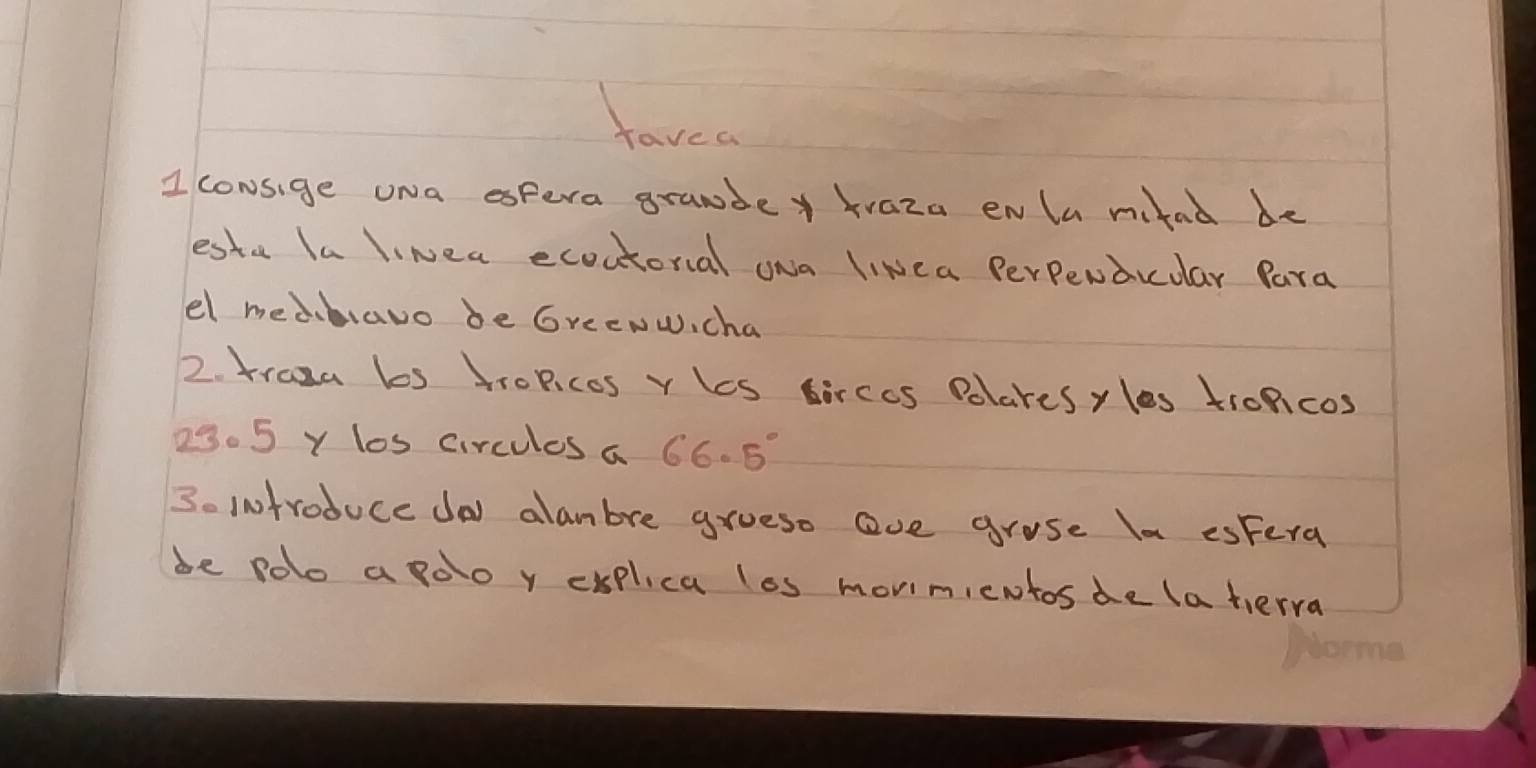 tarea
1 consige una esfera grande y traza en la mitad de
esta la linea ecoutorial una linea Perpendicular Para
el mediavo de Greenwicha
2. traza los tropicos y los circos Polares y los tropicos
23.5 y los circulos a 66.5°
3. introduce un alanbre grueso Que gruse la esfera
de polo a polo y explica los movimientos de la tierra
Norma